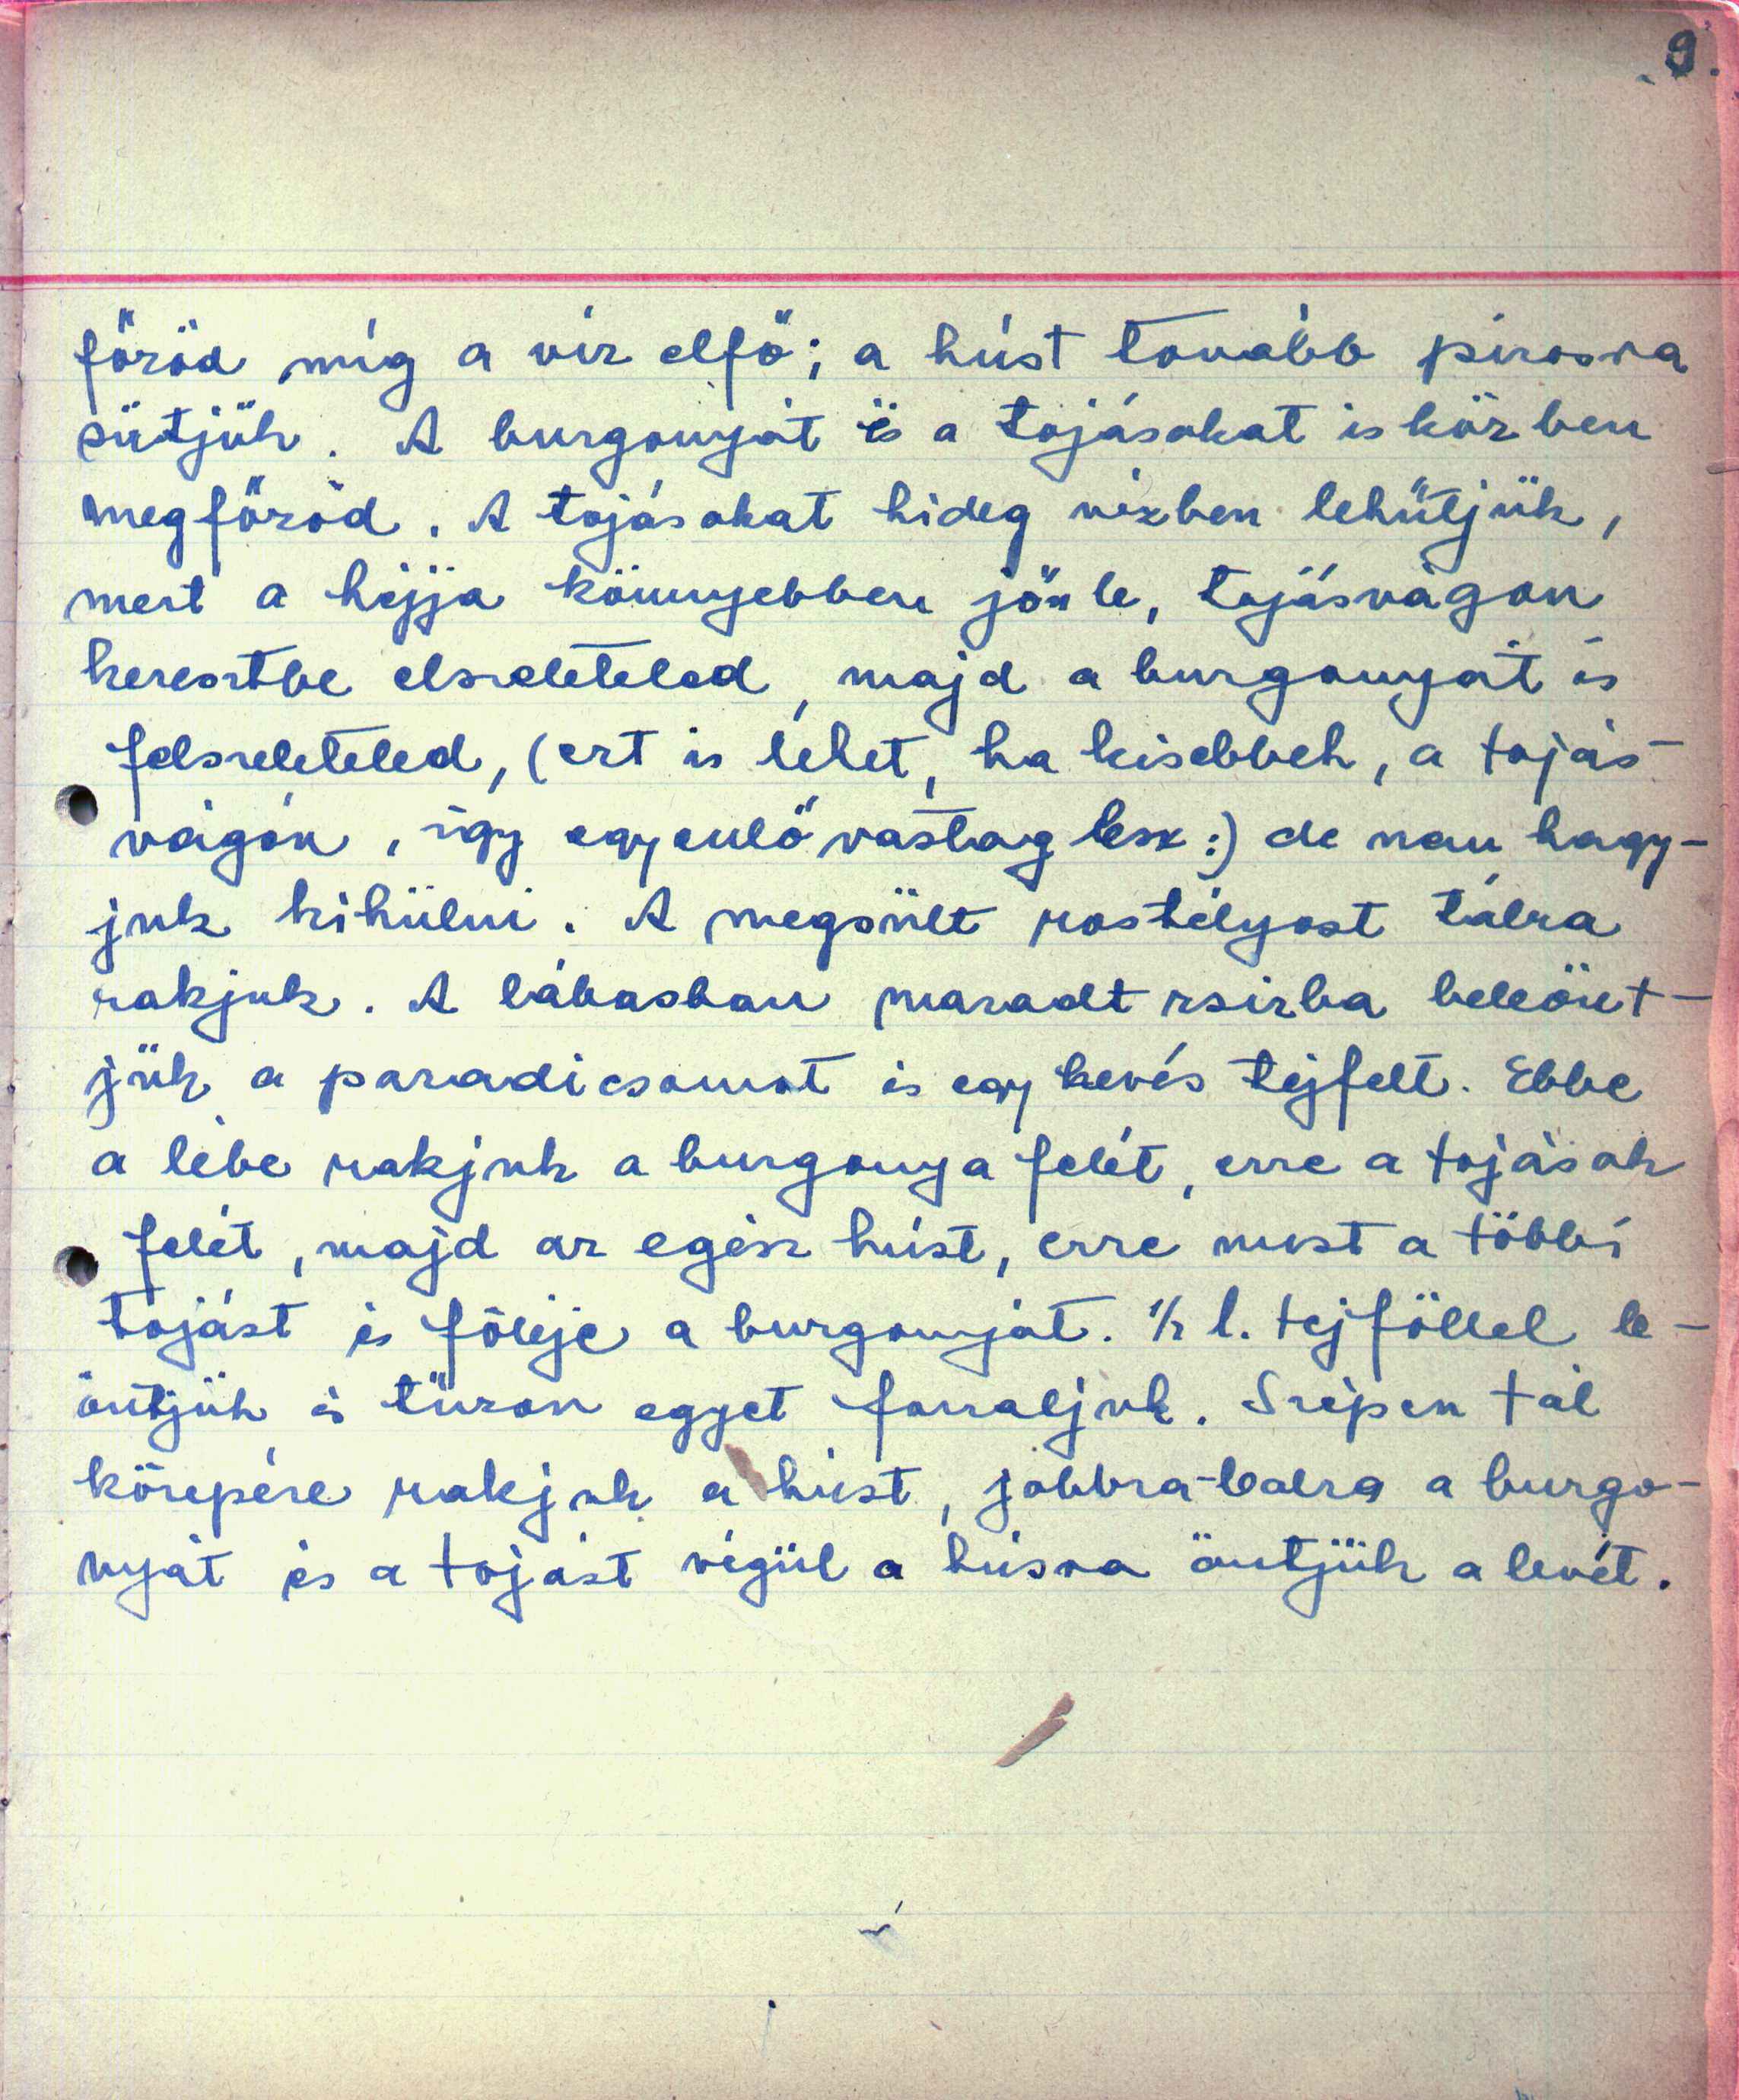 9.
főzöd míg a víz elfő; a húst tovább pirosra
sütjük. A burgonyát és a tojásokat is közben
megfőzöd. A tojásokat hideg vízben lehűtjük,
mert a héjja könnyebben jön le, tojásvágón
keresztbe elszeleteled, majd a burgonyát is
felszeleteled, (ezt is lehet, ha kisebbek, a tojás-
vágón, így egyenlő vastag lesz:) de nem hagy-
juk kihülni. A megsült rostélyost tálra
rakjuk. A lábasban maradt zsirba beleönt-
jük a paradicsomot és egy kevés tejfelt. Ebbe
a lébe rakjuk a burgonya felét, erre a tojások
felét, majd az egész húst, erre most a többi
tojást és föléje a burgonyát. 1/2 l. tejföllel le-
öntjük és tüzön egyet forraljuk. Szépen tál
közepére rakjuk a húst, jobbra-balra a burgo-
nyát és a tojást végül a húsra öntjük a levét.